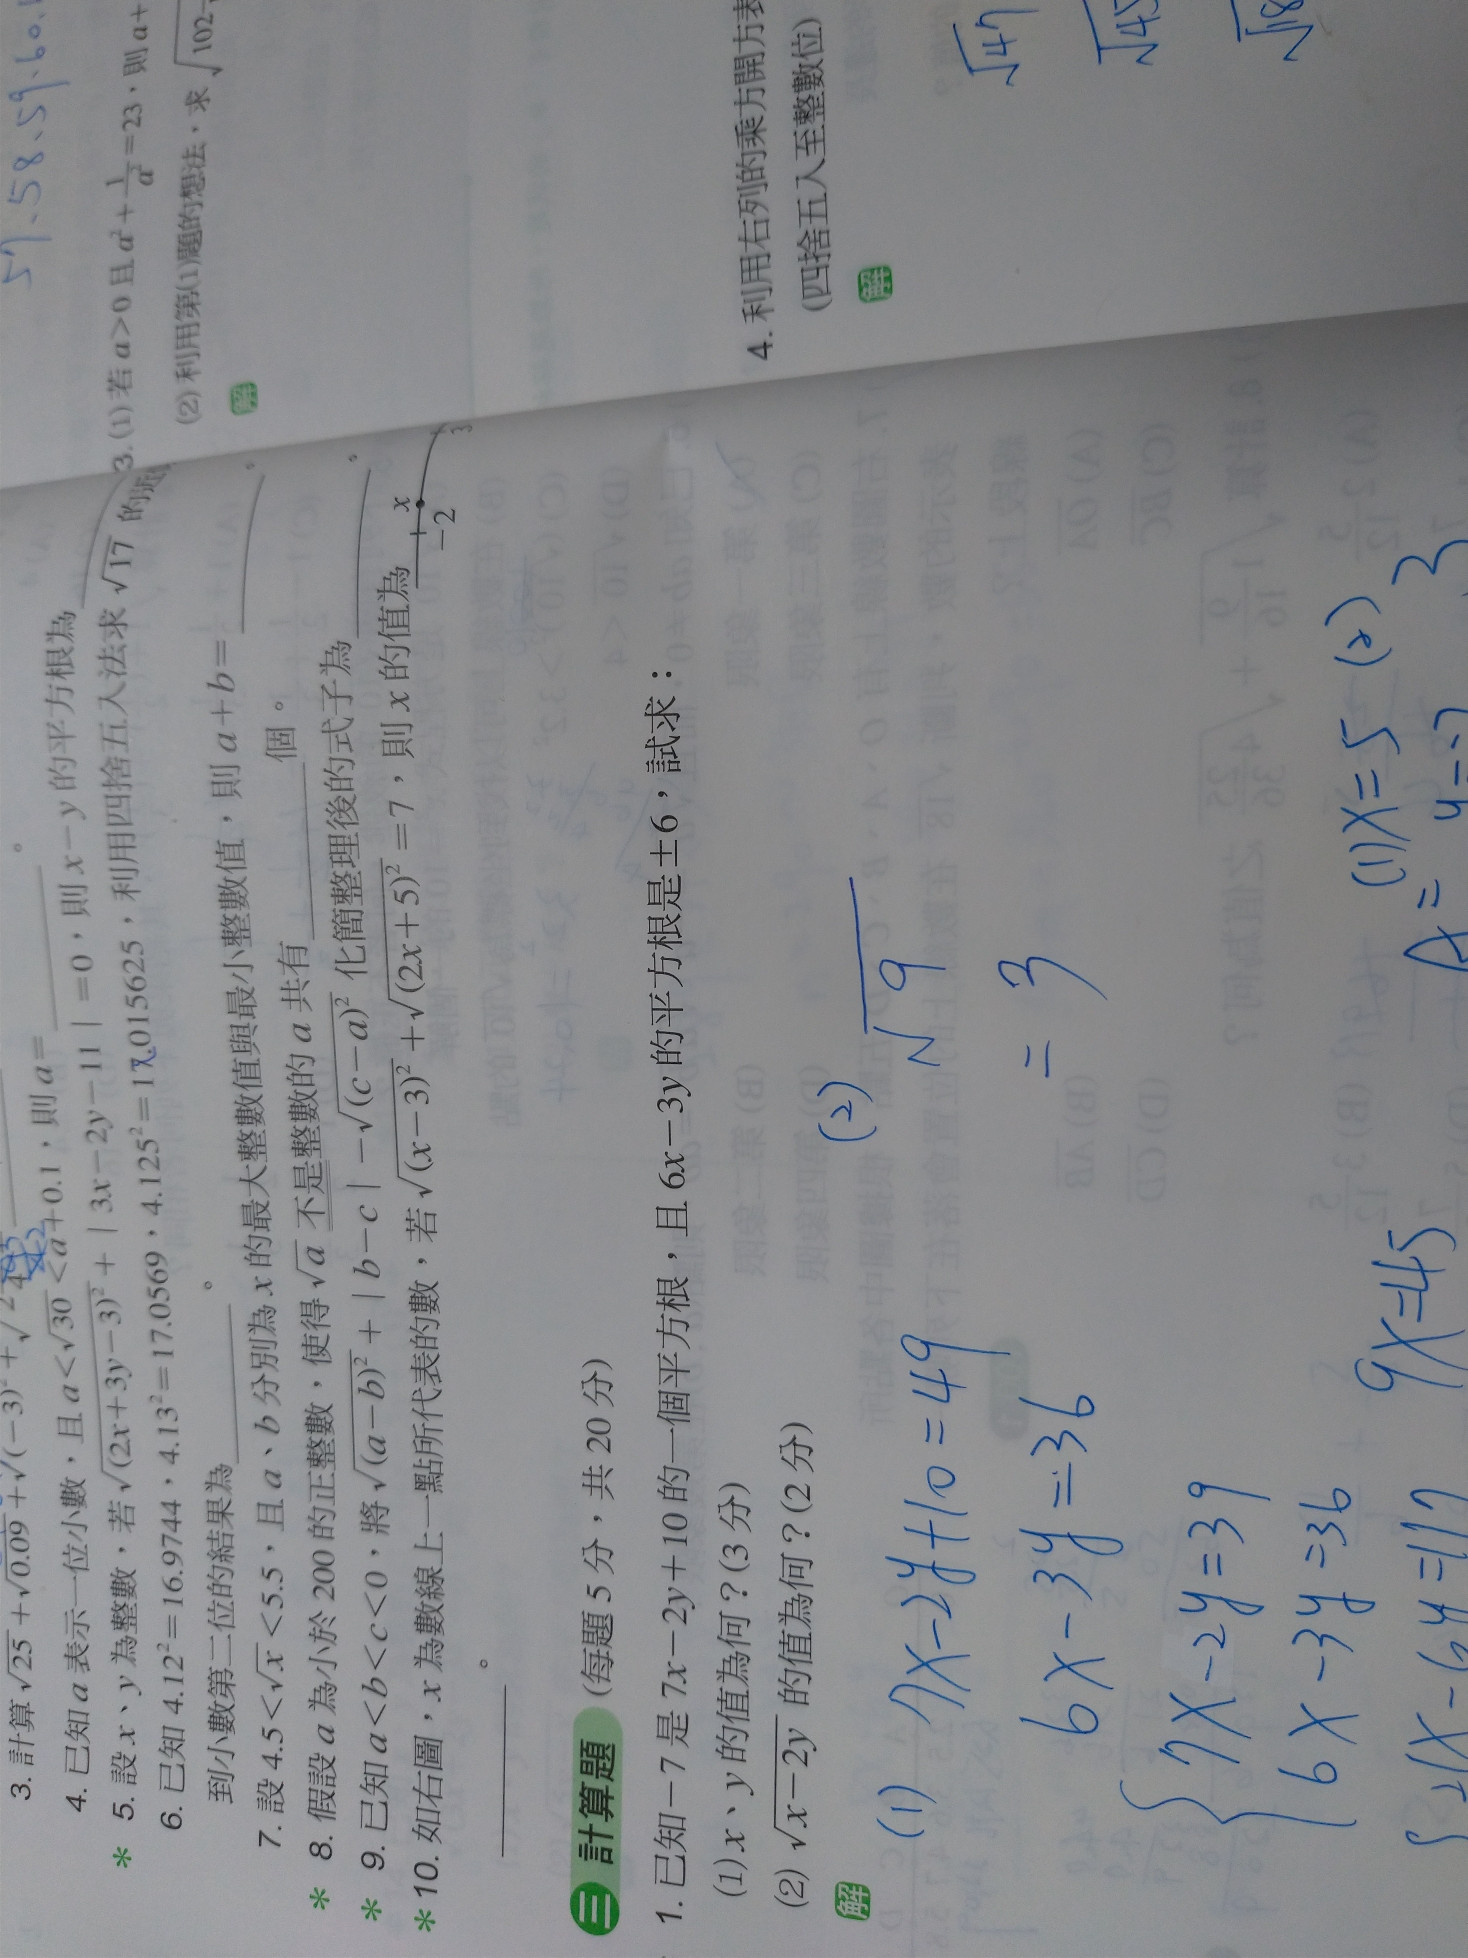 3. 計算√25+√0.09+√(-3)²+√2
4. 已知 a 表示一位小數，且 a<√30<a+0.1，則 a=＿＿＿。
* 5. 設 x、y 為整數，若√(2x+3y-3)²+|3x-2y-11|=0，則 x-y 的平方根為＿＿＿
6. 已知 4.12²=16.9744，4.13²=17.0569，4.125²=17.015625，利用四捨五入法求 √17 的
到小數第二位的結果為＿＿＿。
7. 設 4.5<√x<5.5，且 a、b 分別為 x 的最大整數值與最小整數值，則 a+b=＿＿＿。
* 8. 假設 a 為小於 200 的正整數，使得 √a 不是整數的 a 共有＿＿＿個。
* 9. 已知 a<b<c<0，將√(a-b)²+|b-c|-√(c-a)² 化簡整理後的式子為＿＿＿。
*10. 如右圖，x 為數線上一點所代表的數，若√(x-3)²+√(2x+5)²=7，則 x 的值為
＿＿＿。
x
-2
3
三 計算題 (每題 5 分，共 20 分)
1. 已知-7 是 7x-2y+10 的一個平方根，且 6x-3y 的平方根是±6，試求：
(1) x、y 的值為何？(3 分)
(2) √x-2y 的值為何？(2 分)
解
(1) 7x-2y+10=49
6x-3y=36
{7x-2y=39
6x-3y=36
9x=45
(2) √9
=3
A=(1)x=5 (2) 3
57.58.59.60.
3. (1) 若 a>0 且 a²+1/a²=23，則 a+
(2) 利用第(1)題的想法，求 √102
解
4. 利用右列的乘方開方表
(四捨五入至整數位)
解
√47
√45
√18